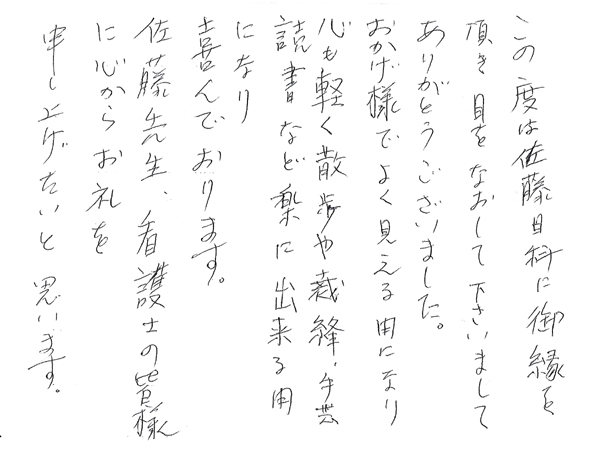 この度は佐藤目科に御縁を
頂き目をなおして下さいまして
ありがとうございました。
おかげ様でよく見える用になり
心も軽く散歩や裁縫、手芸
読書など楽に出来る用
になり
喜んでおります。
佐藤先生、看護士の皆様
に心からお礼を
申し上げたいと思います。